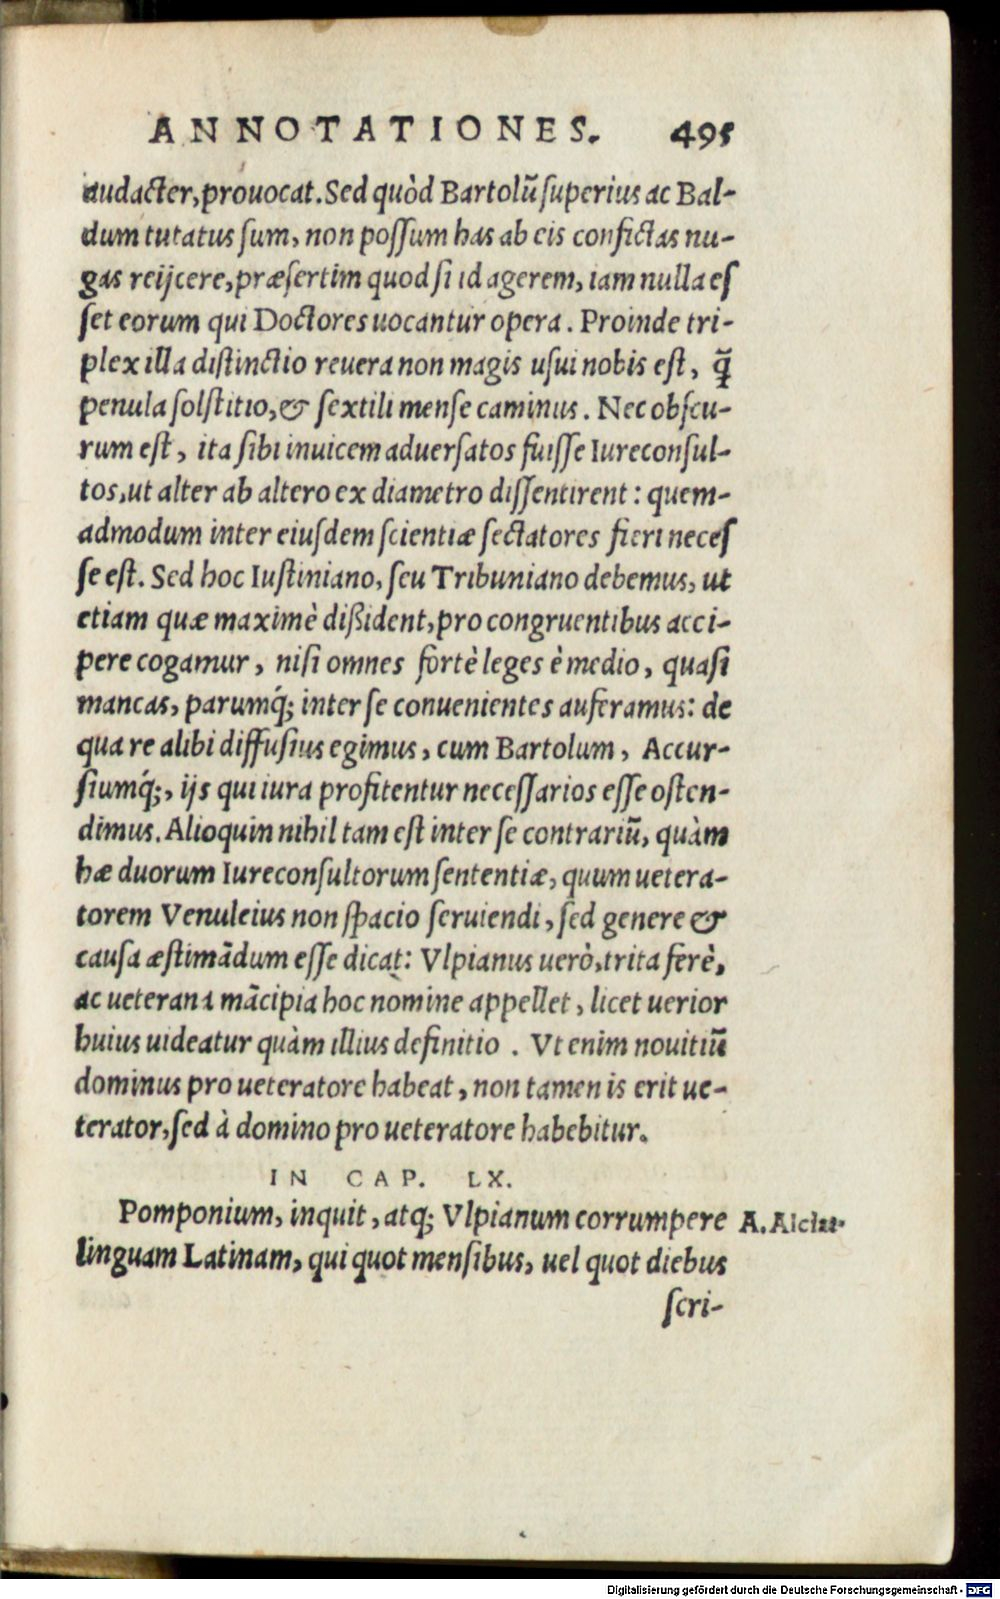 ANNOTATIONES. 495
audacter, prouocat. Sed quòd Bartolū superius ac Bal-
dum tutatus sum, non possum has ab eis confictas nu-
gas reijcere, præsertim quod si id agerem, iam nulla es
set eorum qui Doctores uocantur opera. Proinde tri-
plex illa distinctio reuera non magis usui nobis est, q̄̃
penula solstitio, & sextili mense caminus. Nec obscu-
rum est, ita sibi inuicem aduersatos fuisse Iureconsul-
tos, ut alter ab altero ex diametro dissentirent: quem-
admodum inter eiusdem scientiæ sectatores fieri neces
se est. Sed hoc Iustiniano, seu Tribuniano debemus, ut
etiam quæ maximè dißident, pro congruentibus acci-
pere cogamur, nisi omnes fortè leges è medio, quasi
mancas, parumq́; inter se conuenientes auferamus: de
qua re alibi diffusius egimus, cum Bartolum, Accur-
siumq́;, ijs qui iura profitentur necessarios esse osten-
dimus. Alioquin nihil tam est inter se contrariū, quàm
hæ duorum Iureconsultorum sententiæ, quum uetera-
torem Venuleius non spacio seruiendi, sed genere &
causa æstimādum esse dicat: Vlpianus uerò, trita ferè,
ac ueterana mācipia hoc nomine appellet, licet uerior
huius uideatur quàm illius definitio. Vt enim nouitiū
dominus pro ueteratore habeat, non tamen is erit ue-
terator, sed à domino pro ueteratore habebitur.
IN CAP. LX.
Pomponium, inquit, atq; Vlpianum corrumpere A. Alciat.
linguam Latinam, qui quot mensibus, uel quot diebus
scri-
Digitalisierung gefördert durch die Deutsche Forschungsgemeinschaft - DFG